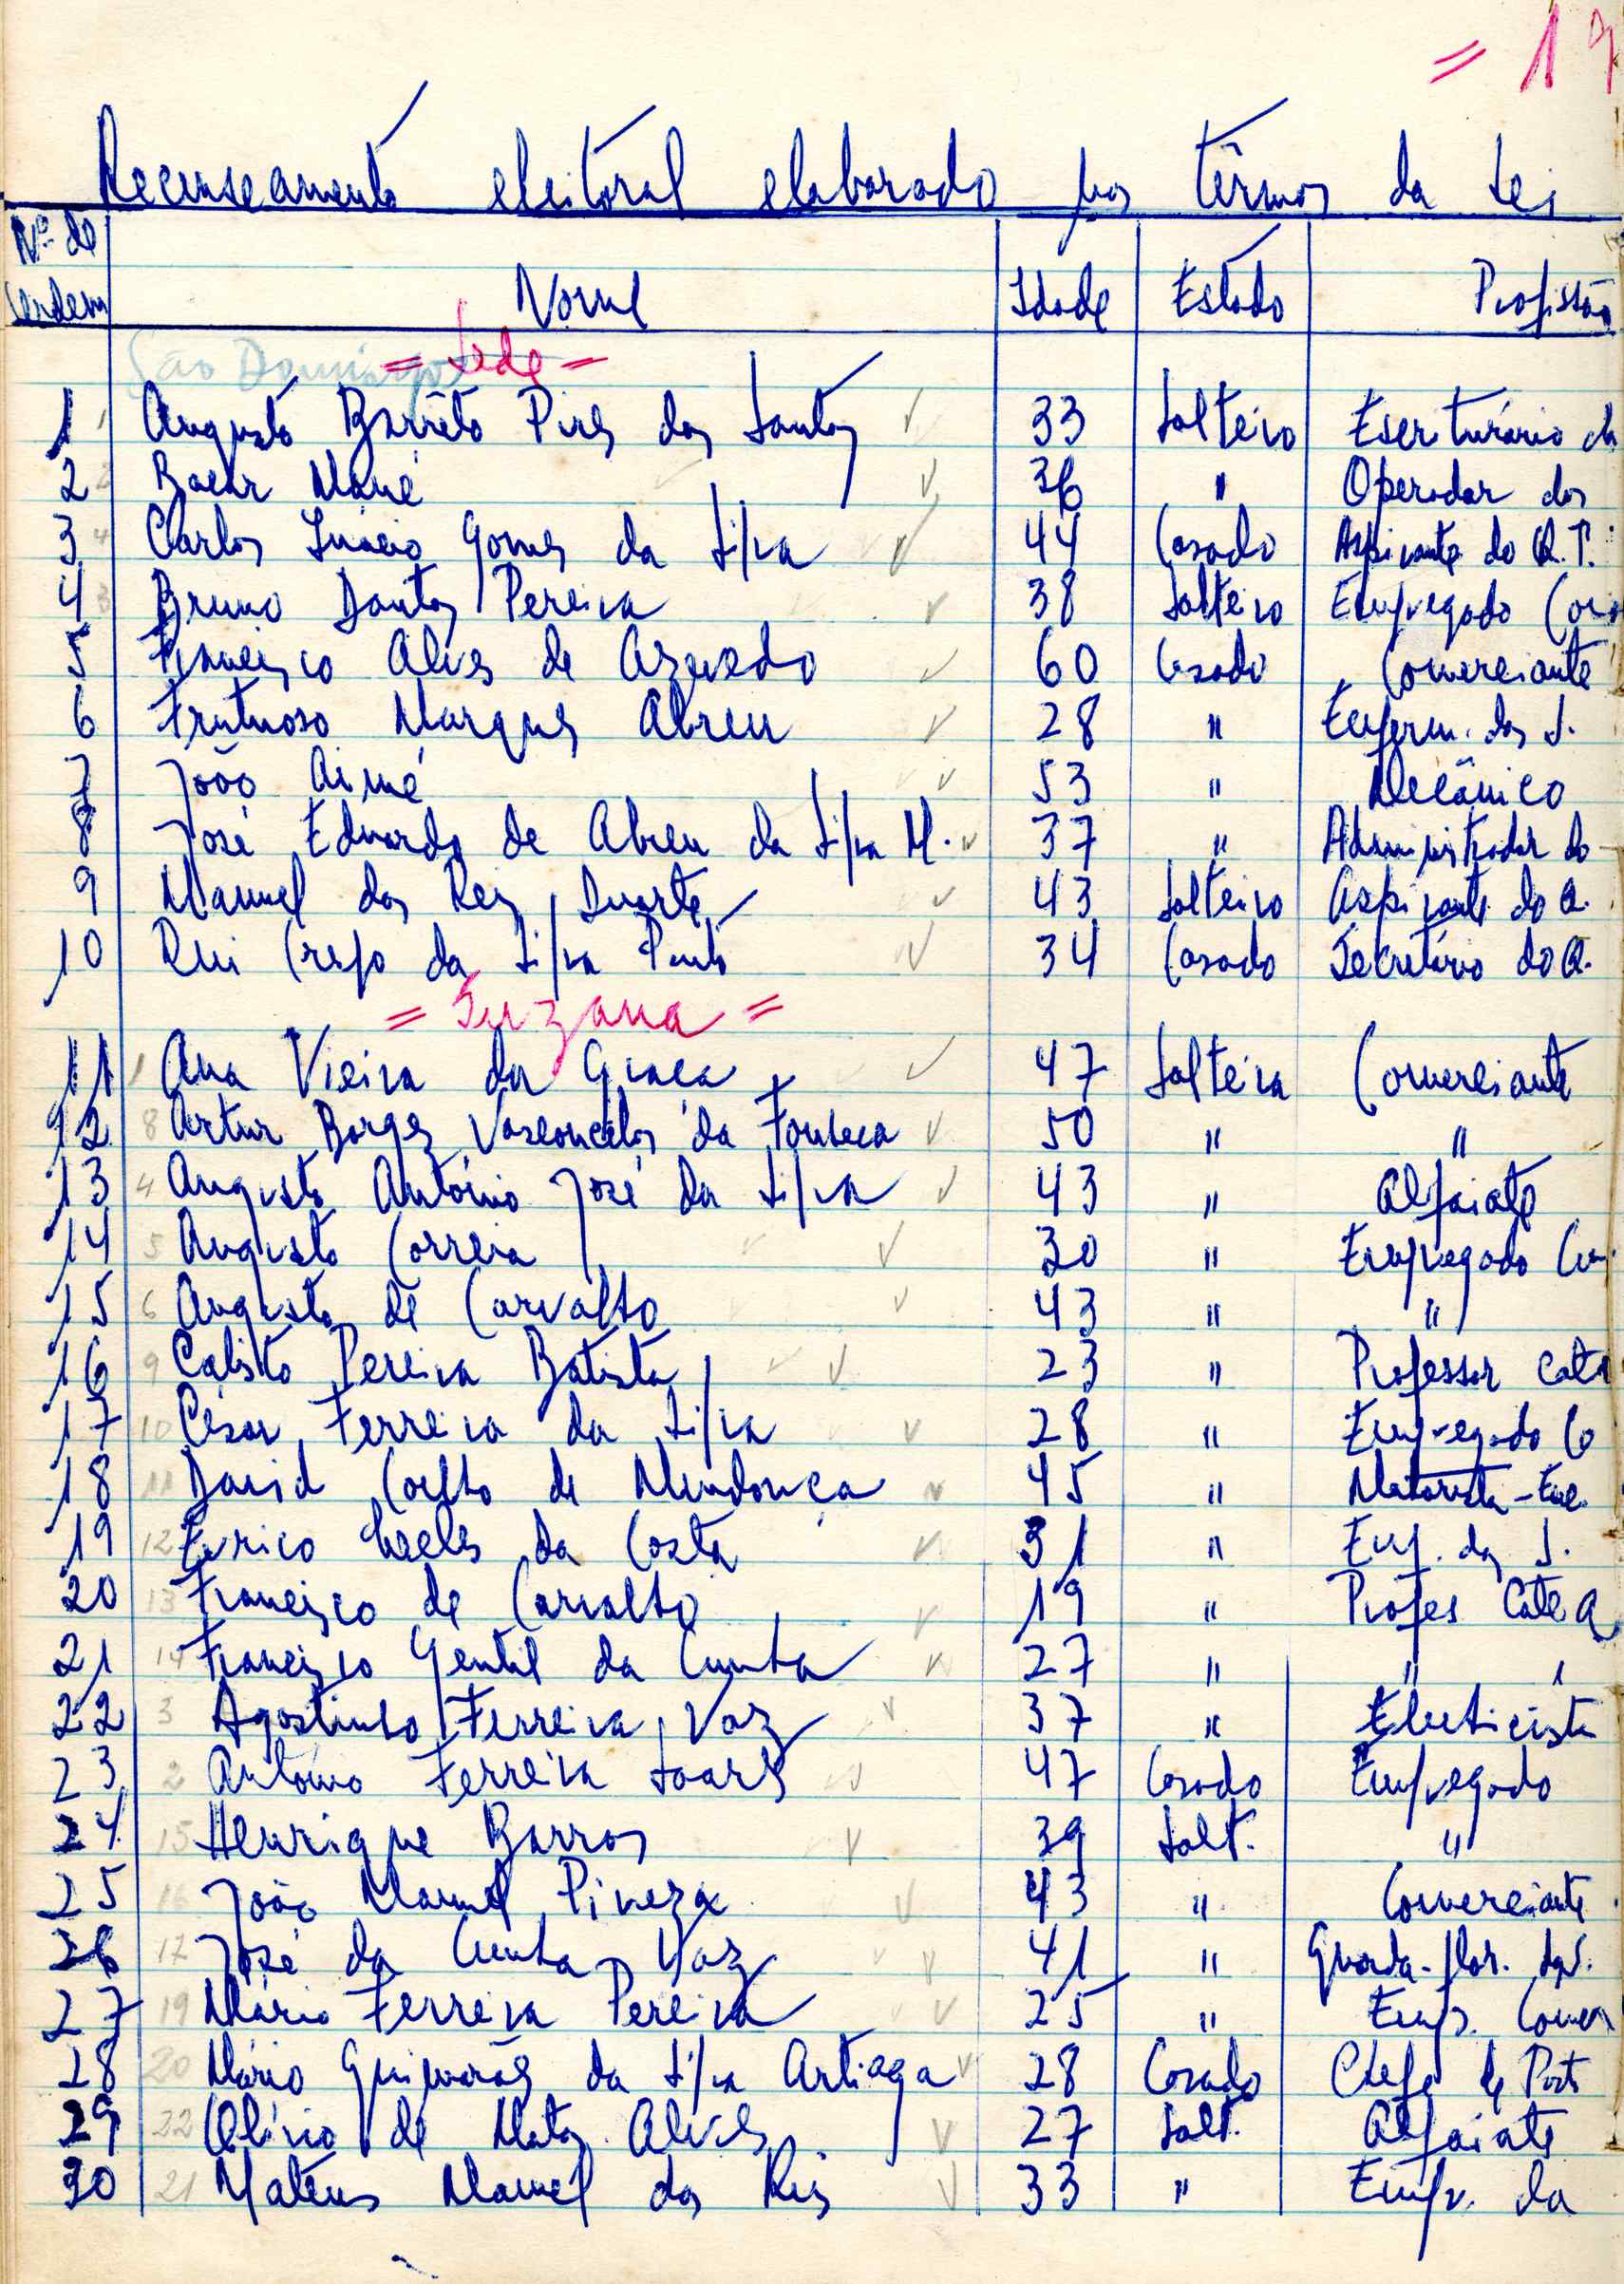 = 19
Recenseamento eleitoral elaborado nos têrmos da Lei
Nº de ordem Nome Idade Estado Profissão
São Domingos = Sede =
1 1 Augusto Barrêto Pires dos Santos 33 Solteiro Escriturário da
2 2 Bacar Mané 36 " Operador dos
3 4 Carlos Inácio Gomes da Silva 44 Casado Aspirante do Q. T.
4 3 Bruno Dantas Pereira 38 Solteiro Empregado Com
5 Francisco Alves de Azevedo 60 Casado Comerciante
6 Frutuoso Marques Abreu 28 " Enferm. dos S.
7 João Aimé 53 " Mecânico
8 José Eduardo de Abreu da Silva M. 37 " Administrador do
9 Manuel dos Reis Duarte 43 Solteiro Aspirante do Q.
10 Rui Crespo da Silva Pinto 34 Casado Secretário do Q.
= Suzana =
11 1 Ana Vieira da Graça 47 Solteira Comerciante
12 8 Artur Borges Vasconcelos da Fonseca 50 " "
13 4 Augusto António José da Silva 43 " Alfaiate
14 5 Augusto Correia 30 " Empregado Com
15 6 Augusto de Carvalho 43 " "
16 9 Calisto Pereira Batista 23 " Professor Cate
17 10 César Ferreira da Silva 28 " Empregado Co
18 11 David Coelho de Mendonça 45 " Motorista-
19 12 Eurico da Costa 31 " Emp. dos S.
20 13 Francisco de Carvalho 19 " Profes Cateq
21 14 Francisco Gentil da Cunha 27 " "
22 3 Agostinho Ferreira Vaz 37 " Electricista
23 2 António Ferreira Soares 47 Casado Empregado
24 15 Henrique Barros 39 Solt. "
25 16 João Manuel Pireza 43 " Comerciante
26 17 José da Cunha Vaz 41 " Guarda-flor. dos S.
27 19 Mário Ferreira Pereira 25 " Emp. Comer
28 20 Mário Guimarães da Silva Artiaga 28 Casado Chefe de Posto
29 22 Olívio de Matos Alves 27 Solt. Alfaiate
30 21 Mateus Manuel dos Reis 33 " Empr. da